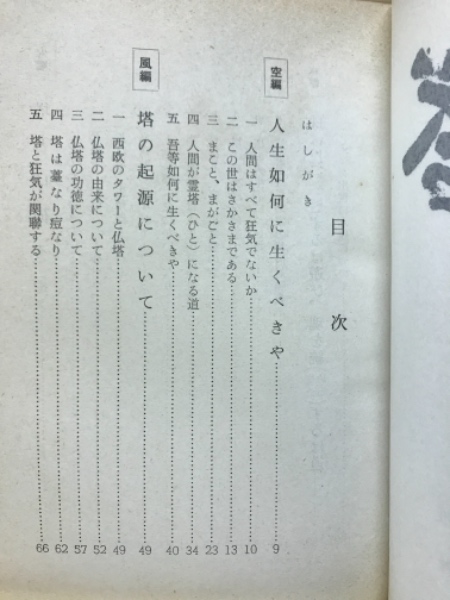 目次
はしがき
空編
人生如何に生くべきや 9
一 人間はすべて狂気でないか 10
二 この世はさかさまである 13
三 まこと、まがごと 23
四 人間が霊塔（ひと）になる道 34
五 吾等如何に生くべきや 40
風編
塔の起源について 49
一 西欧のタワーと仏塔 49
二 仏塔の由来について 52
三 仏塔の功徳について 57
四 塔は墓なり痘なり 62
五 塔と狂気が関聯する 66